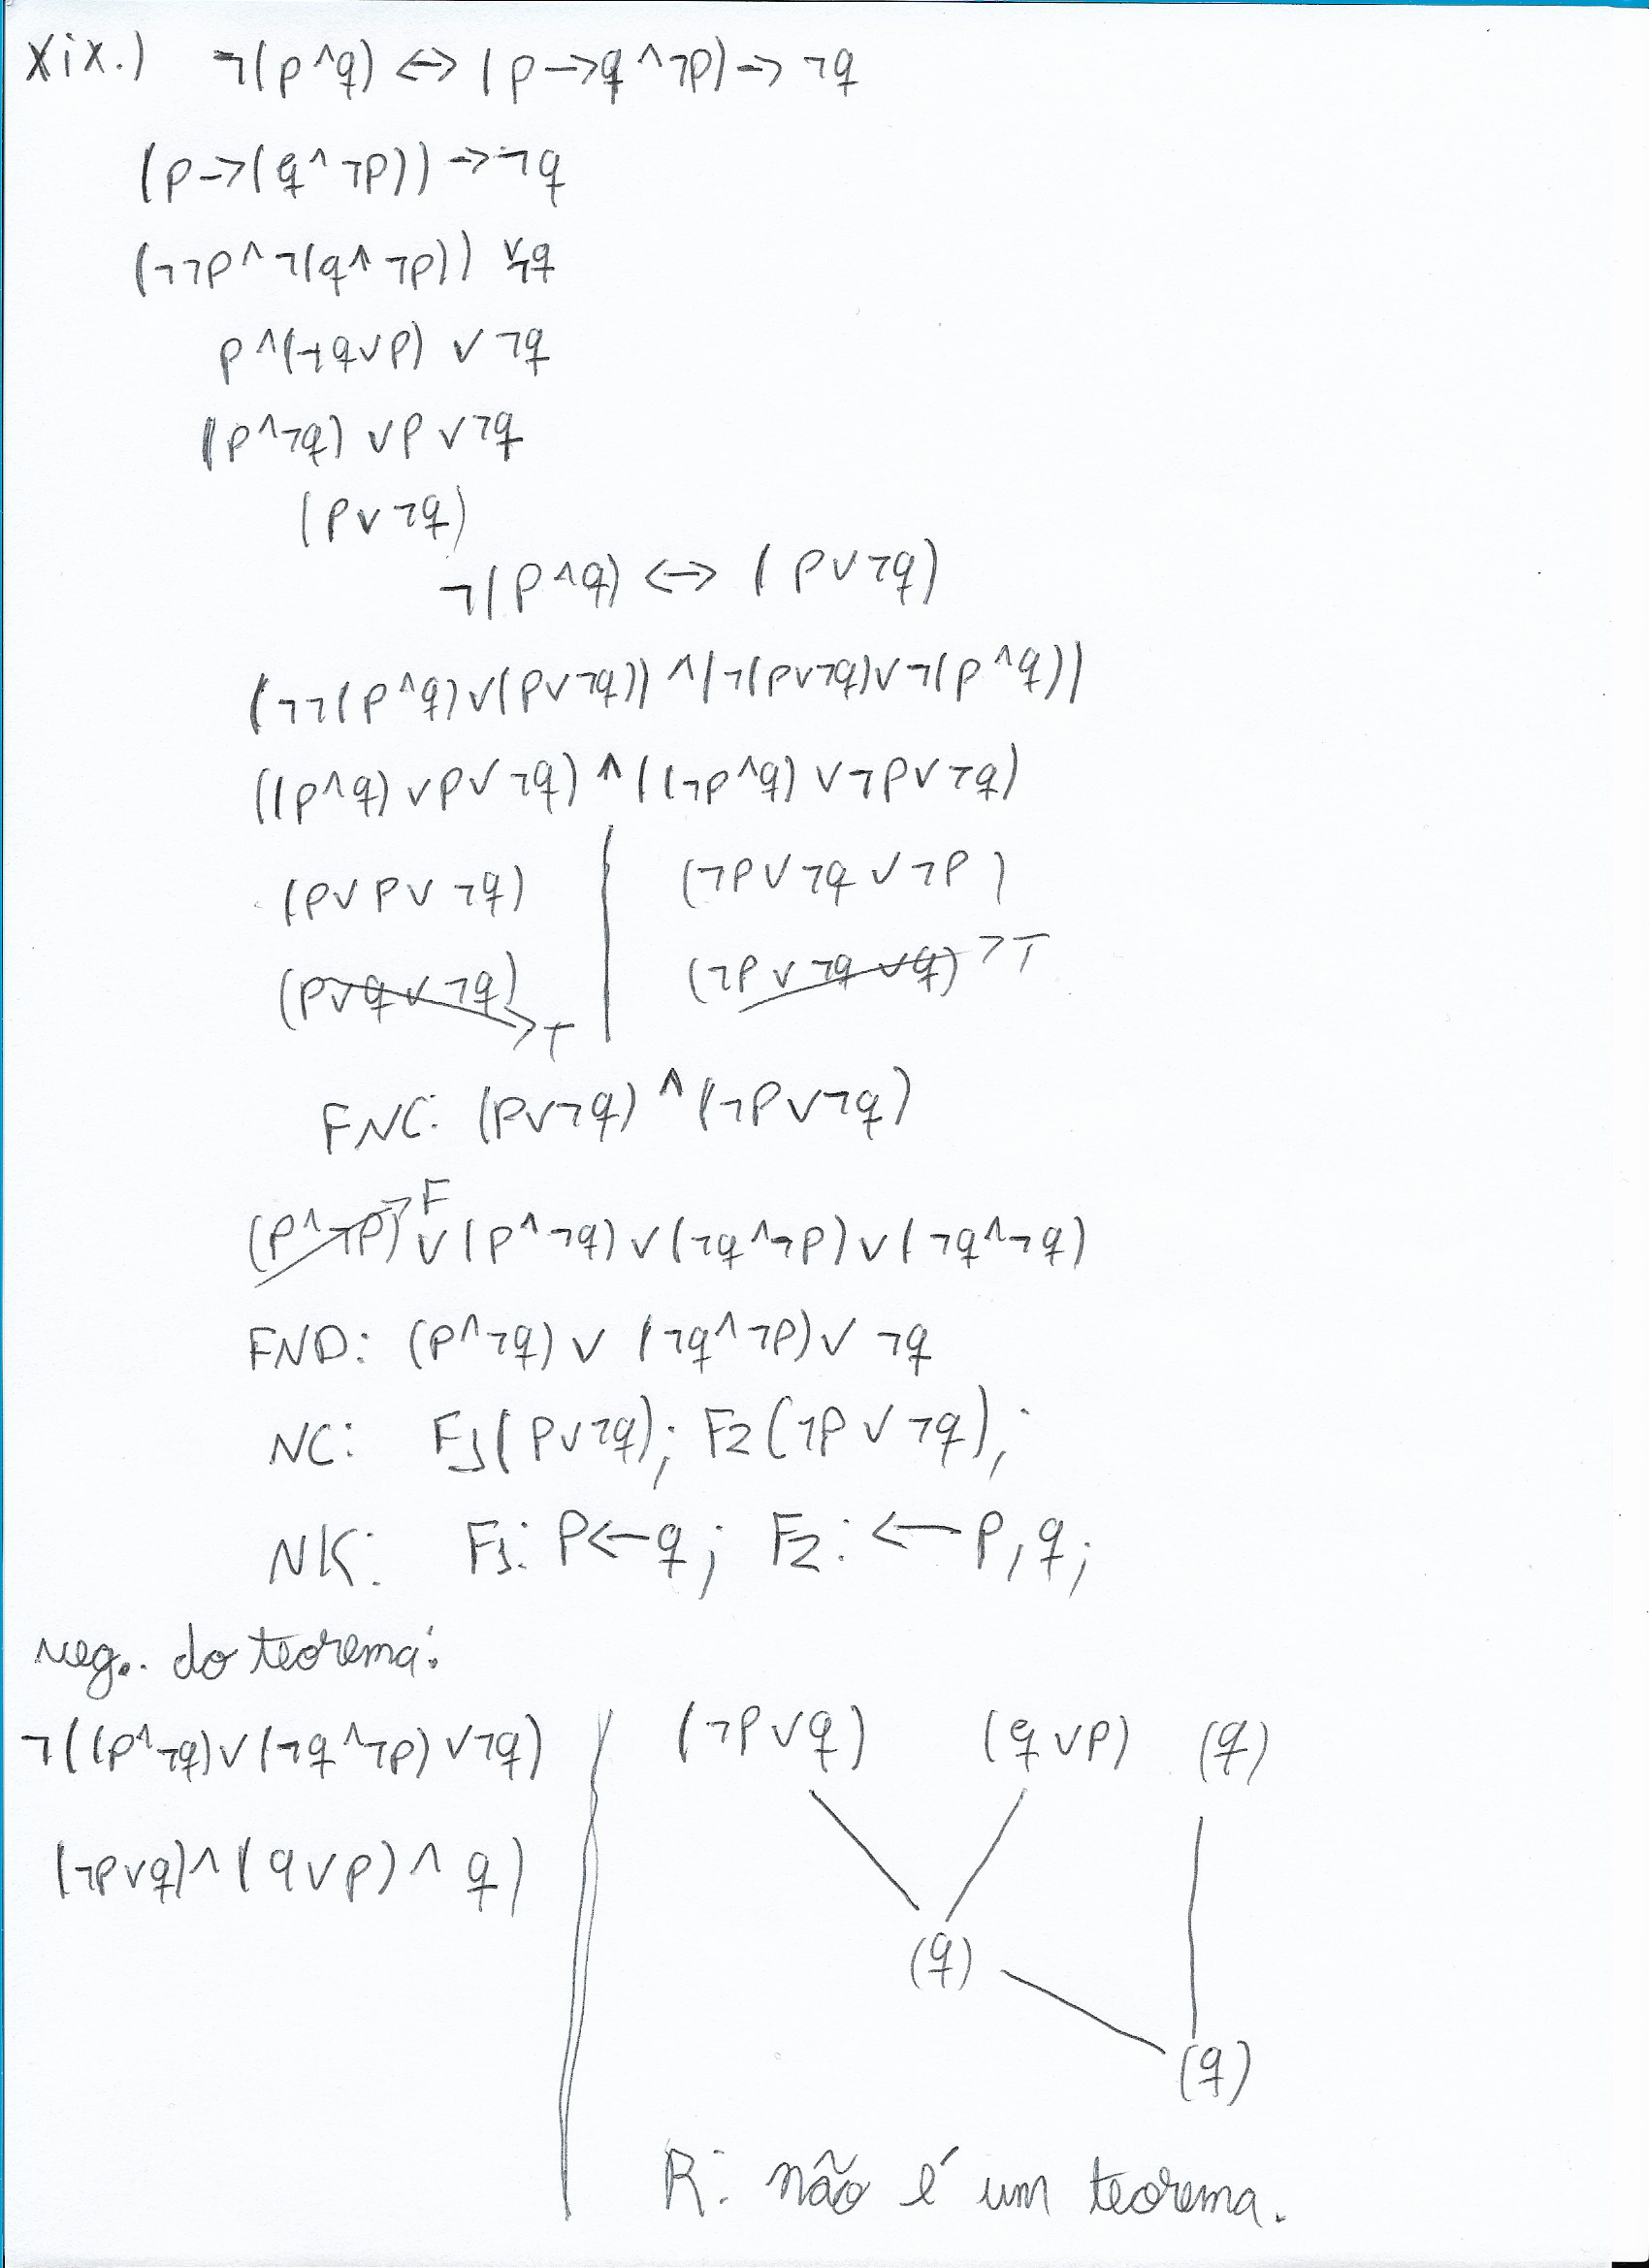 xix.) ¬(p^q) <-> (p->q^¬p)->¬q
(p->(q^¬p))->¬q
(¬¬p^¬(q^¬p)) ∨¬q
p^(¬q∨p) ∨ ¬q
(p^¬q) ∨p ∨¬q
(p∨¬q)
¬(p^q) <-> (p∨¬q)
(¬¬(p^q)∨(p∨¬q))^(¬(p∨¬q)∨¬(p^q))
((p^q)∨p∨¬q)^((¬p^q)∨¬p∨¬q)
(p∨p∨¬q) (¬p∨¬q∨¬p)
(p∨q∨¬q) ->T (¬p∨¬q∨q) ->T
FNC: (p∨¬q)^(¬p∨¬q)
(p^¬p) ->F ∨(p^¬q)∨(¬q^¬p)∨(¬q^¬q)
FND: (p^¬q)∨(¬q^¬p)∨¬q
NC: F1(p∨¬q); F2(¬p∨¬q);
NK: F1: p<-q; F2: <-p,q;
neg.. do teorema:
¬((p^¬q)∨(¬q^¬p)∨¬q)
(¬p∨q)^(q∨p)^q)
(¬p∨q) (q∨p) (q)
(q)
(q)
R: não é um teorema.